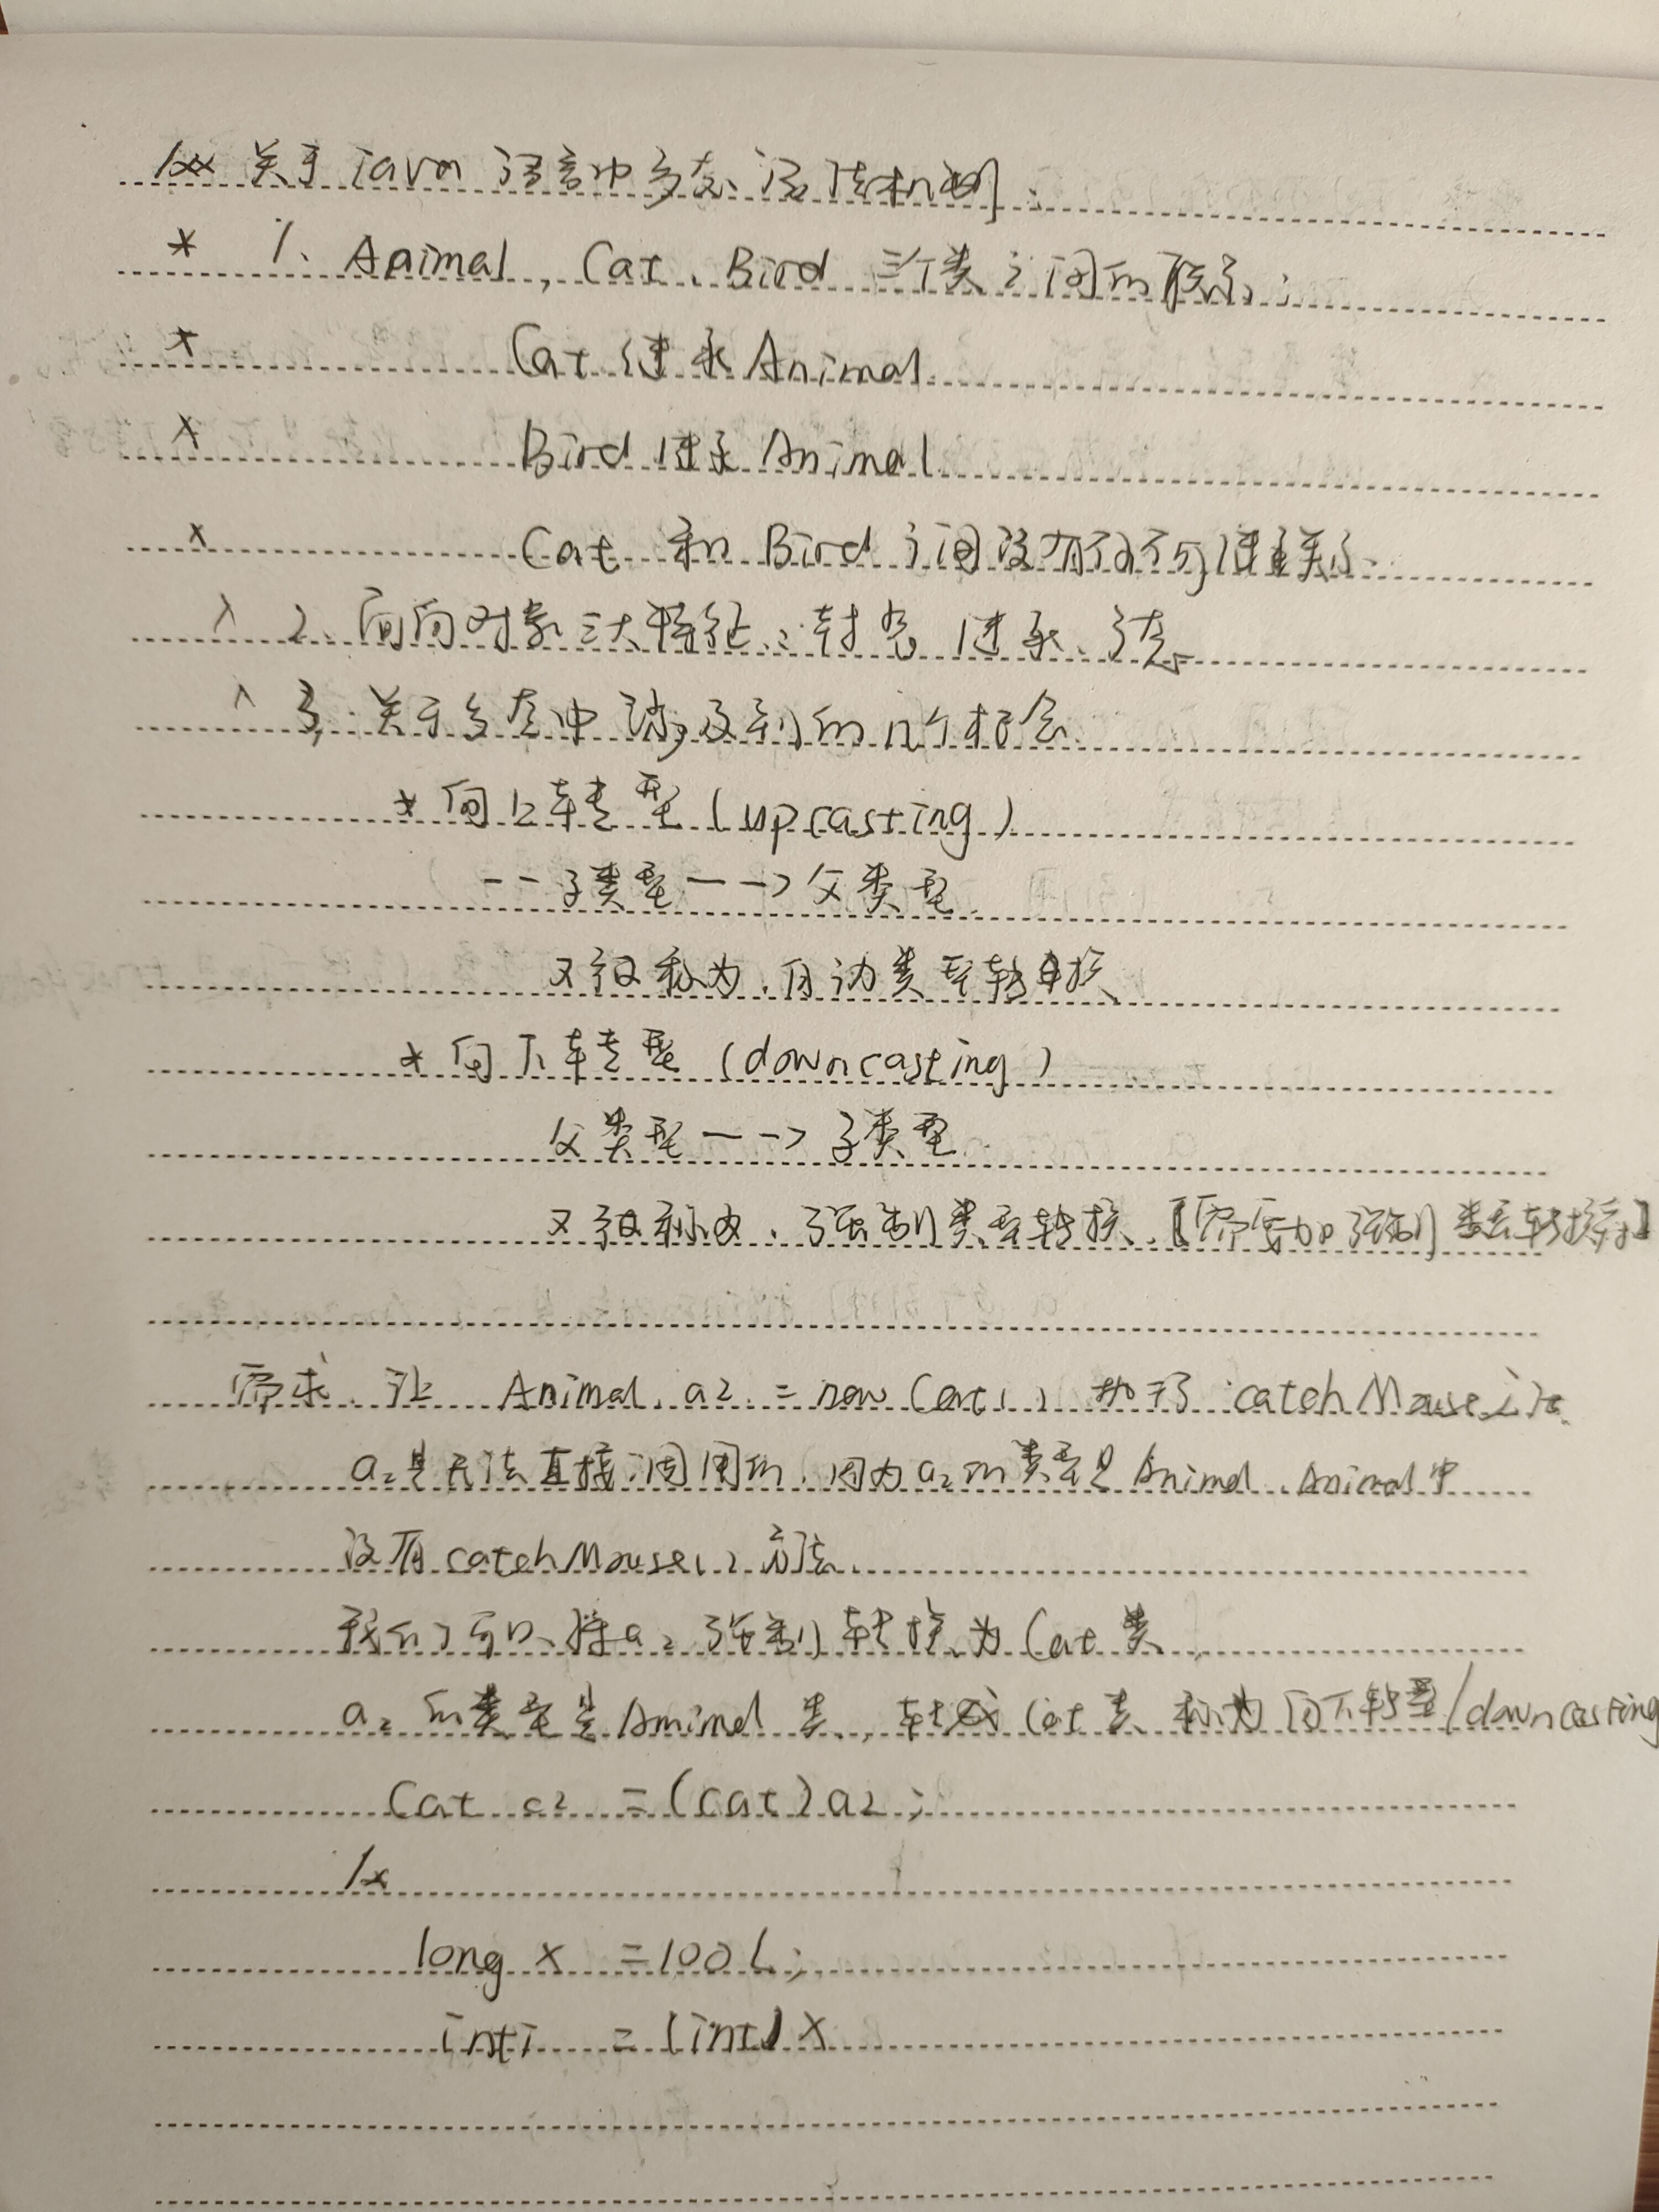 /** 关于java语言中多态语法机制:
* 1、Animal, Cat、Bird 三个类之间的联系:
* Cat 继承 Animal
* Bird 继承 Animal
* Cat 和 Bird 之间没有任何继承关系、
* 2、面向对象三大特征:封装 继承、多态
* 3、关于多态中涉及到的几个概念
* 向上转型 (upcasting)
--子类型--->父类型
又被称为、自动类型转换
* 向下转型 (downcasting)
父类型--->子类型
又被称为、强制类型转换、【需要加强制类型转换符】
需求、让 Animal a2 = new Cat() 执行 catchMouse方法
a2是无法直接调用的、因为a2的类型是Animal、Animal中
没有catchMouse()方法、
我们可以将a2强制转换为Cat类、
a2的类型是Animal类,转成Cat类称为向下转型/downcasting
Cat c2 = (cat)a2;
/*
long x = 100L;
int i = (int)x